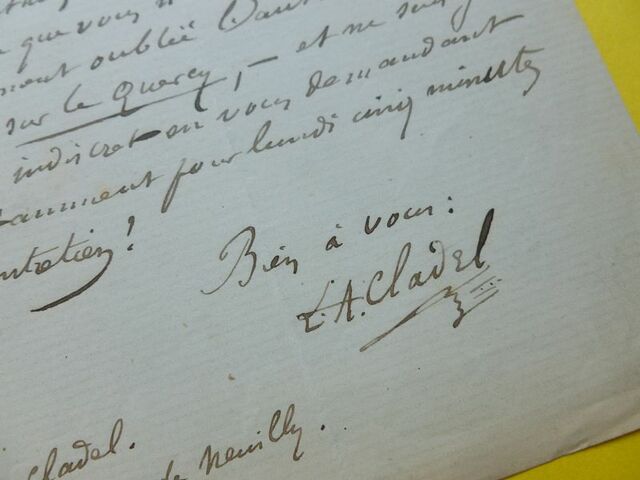 que vous
ment oublié
sur le Quercy, – et ne suis
indiscret en vous demandant
tamment pour lundi cinq minutes
ntretien!
Bien à vous:
L.A. Cladel
Cladel.
de Neuilly.